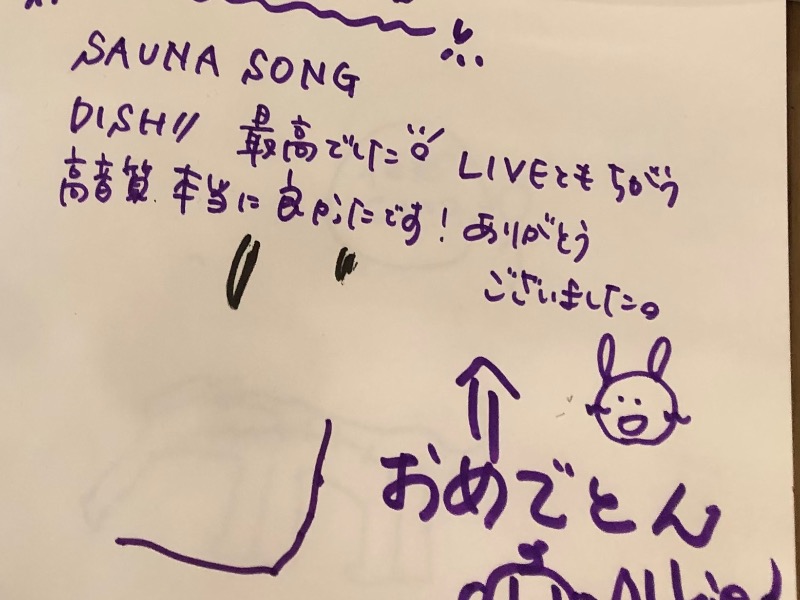 SAUNA SONG
DISH// 最高でした LIVEともちがう
高音質 本当に良かったです！ありがとう
ございました。
おめでとん